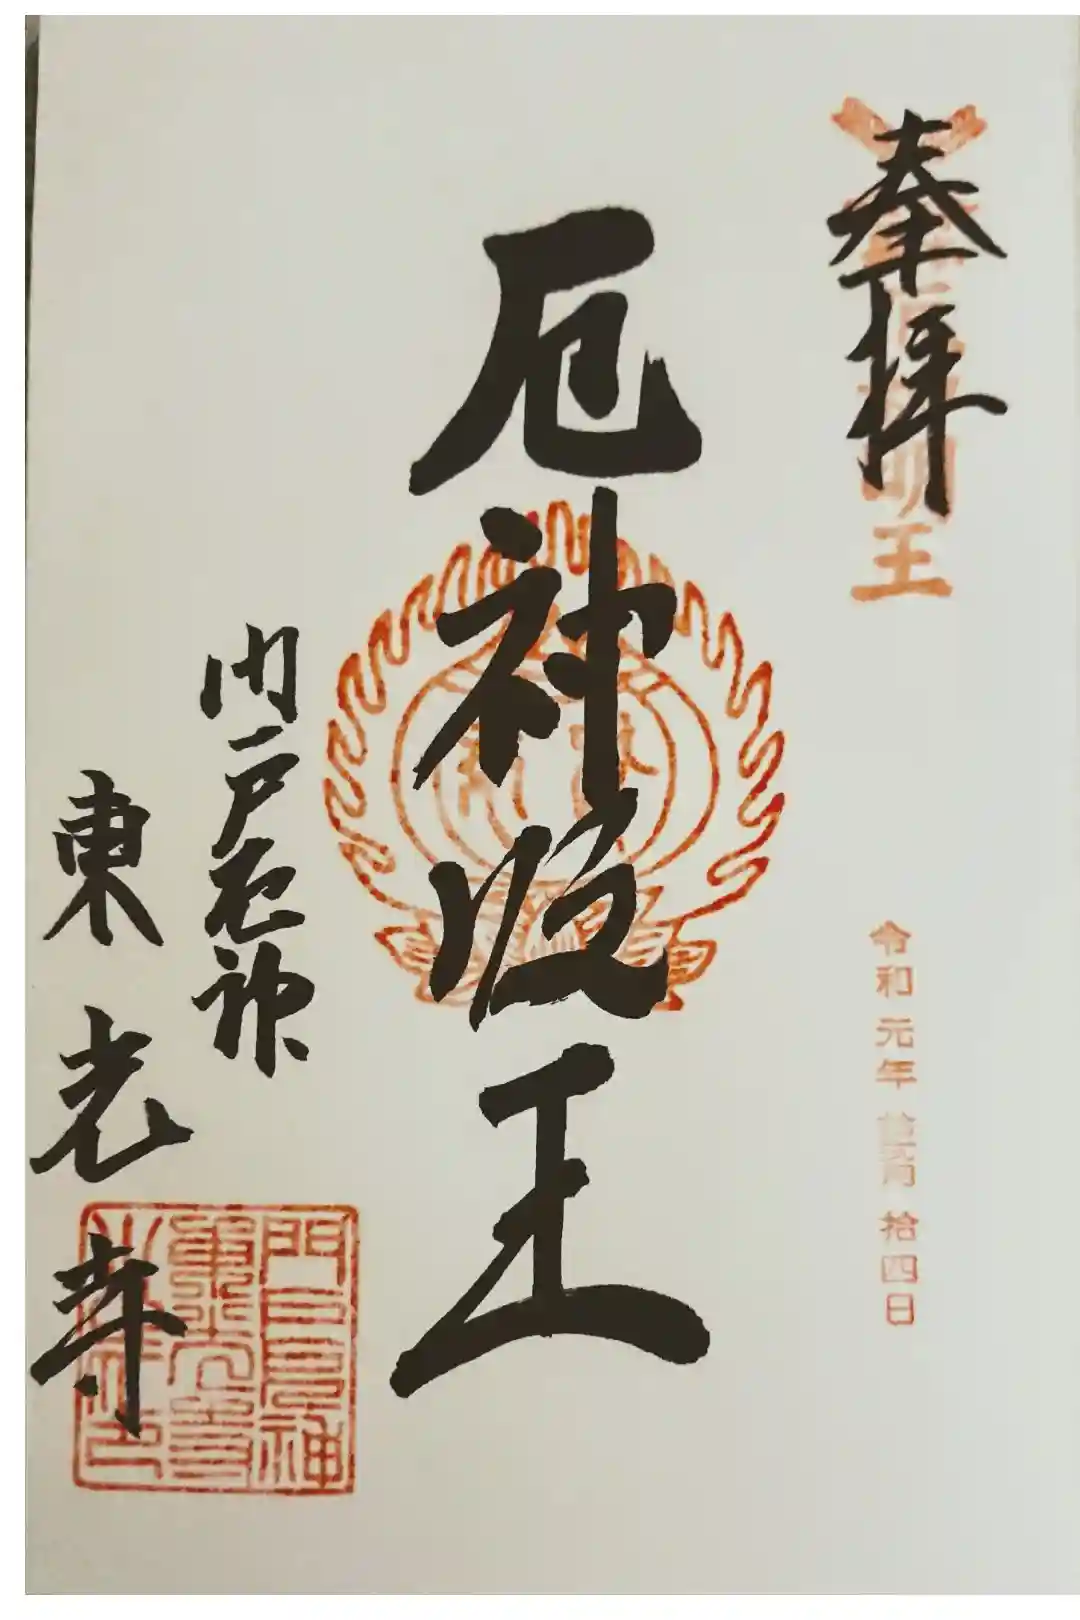 奉拝
明王
令和元年
拾四日
厄神明王
門戸厄神
東光寺
門戸厄神
東光寺